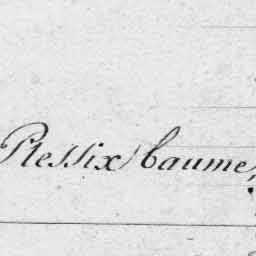 Plessix baume,